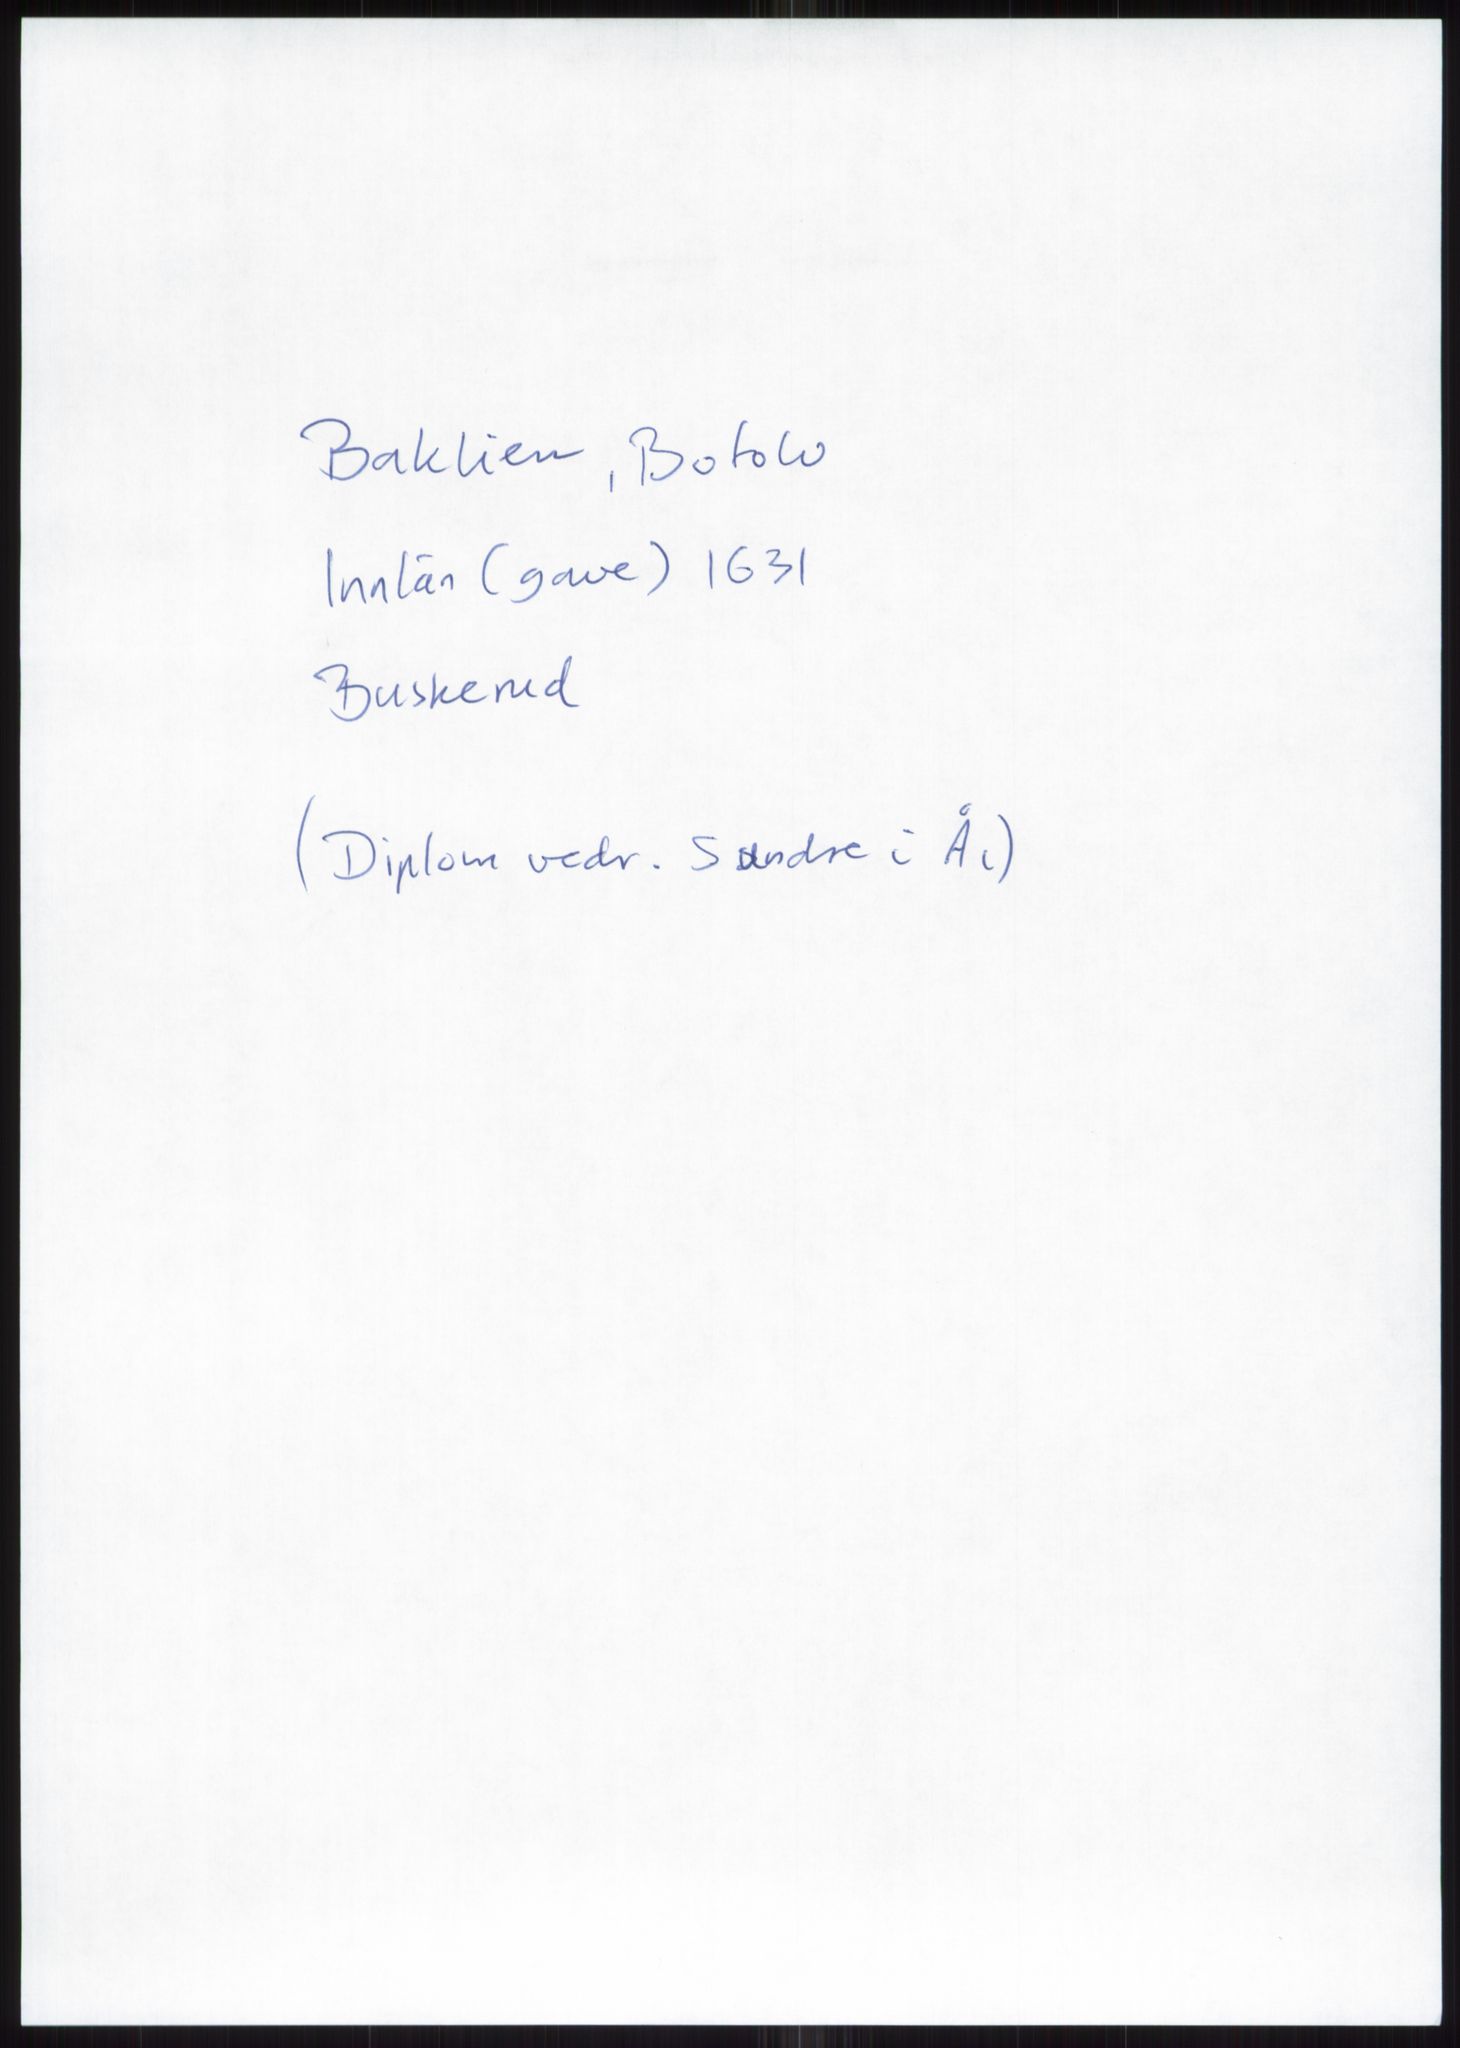 Baklien, Botolv
Innlån (gave) 1631
Buskerud
(Diplom vedr. Sundre i Ål)